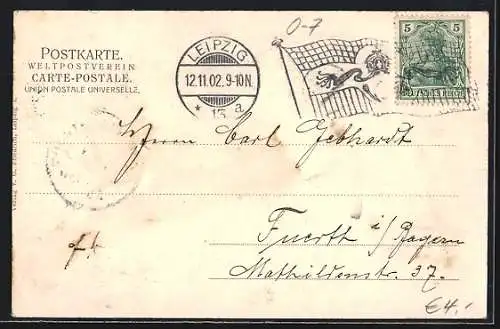 O-7
POSTKARTE.
WELTPOSTVEREIN
CARTE-POSTALE.
UNION POSTALE UNIVERSELLE,
LEIPZIG
12.11.02. 9-10N.
* 13 a
5 5
DEUTSCHES REICH
Herrn Carl Gebhardt
Fuerth i/Bayern
Mathildenstr. 37.
€4.-